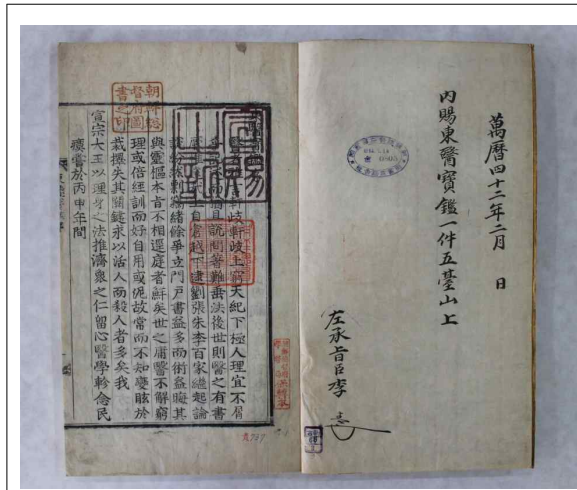 萬曆四十二年二月　日
內賜東醫寶鑑一件五臺山上
左承旨臣李
醫
軒岐軒岐上窮天紀下極人理宜不屑
說問著難垂法後世則醫之有書
倉越下逮劉張朱李百家繼起論
緒餘爭立門戶書益多而術益晦其
與靈樞本旨不相逕庭者鮮矣世之庸醫不解窮
理或倍經訓而好自用或泥故常而不知變眩於
裁擇失其關鍵求以活人而殺人者多矣我
宣宗大王以理身之法推濟衆之仁留心醫學軫念民
瘼嘗於丙申年間
朝鮮總
督府圖
書之印